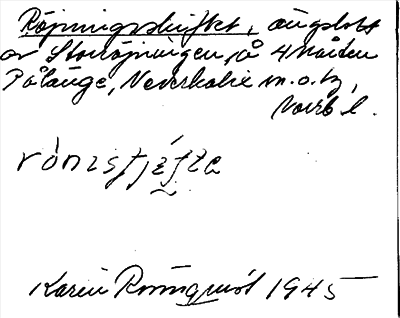 Röjningsskiftet, ängslott
av Storröjningen, å 4 Måiden
Pålänge, Nederkalix m. o. tg,
Norrb l.
rònisfjéfta
Karin Rönnquist 1945